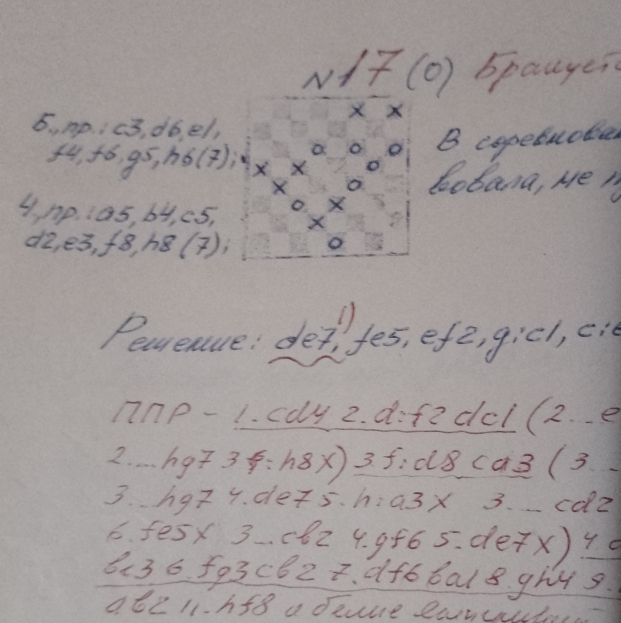 N17 (0) Бракует
Б., пр.: c3, d6, e1,
f4, f6, g5, h6 (7);
В соревнова
вовала, не п
Ч, пр.: a5, b4, c5,
d2, e3, f8, h8 (7);
Решение: de7,¹⁾ fe5, ef2, g:c1, c:e
ППР - 1.cd4 2.d:f2 dc1 (2...e
2...hg7 3f:h8X) 3.f:d8 ca3 (3...
3...hg7 4.de7 5.h:a3X 3...cd2
6.fe5X 3...cb2 4.gf6 5.de7X) 4.
bc3 6.fg3 cb2 7.df6 ba1 8.gh4 9.
ab2 11.hf8 а белые